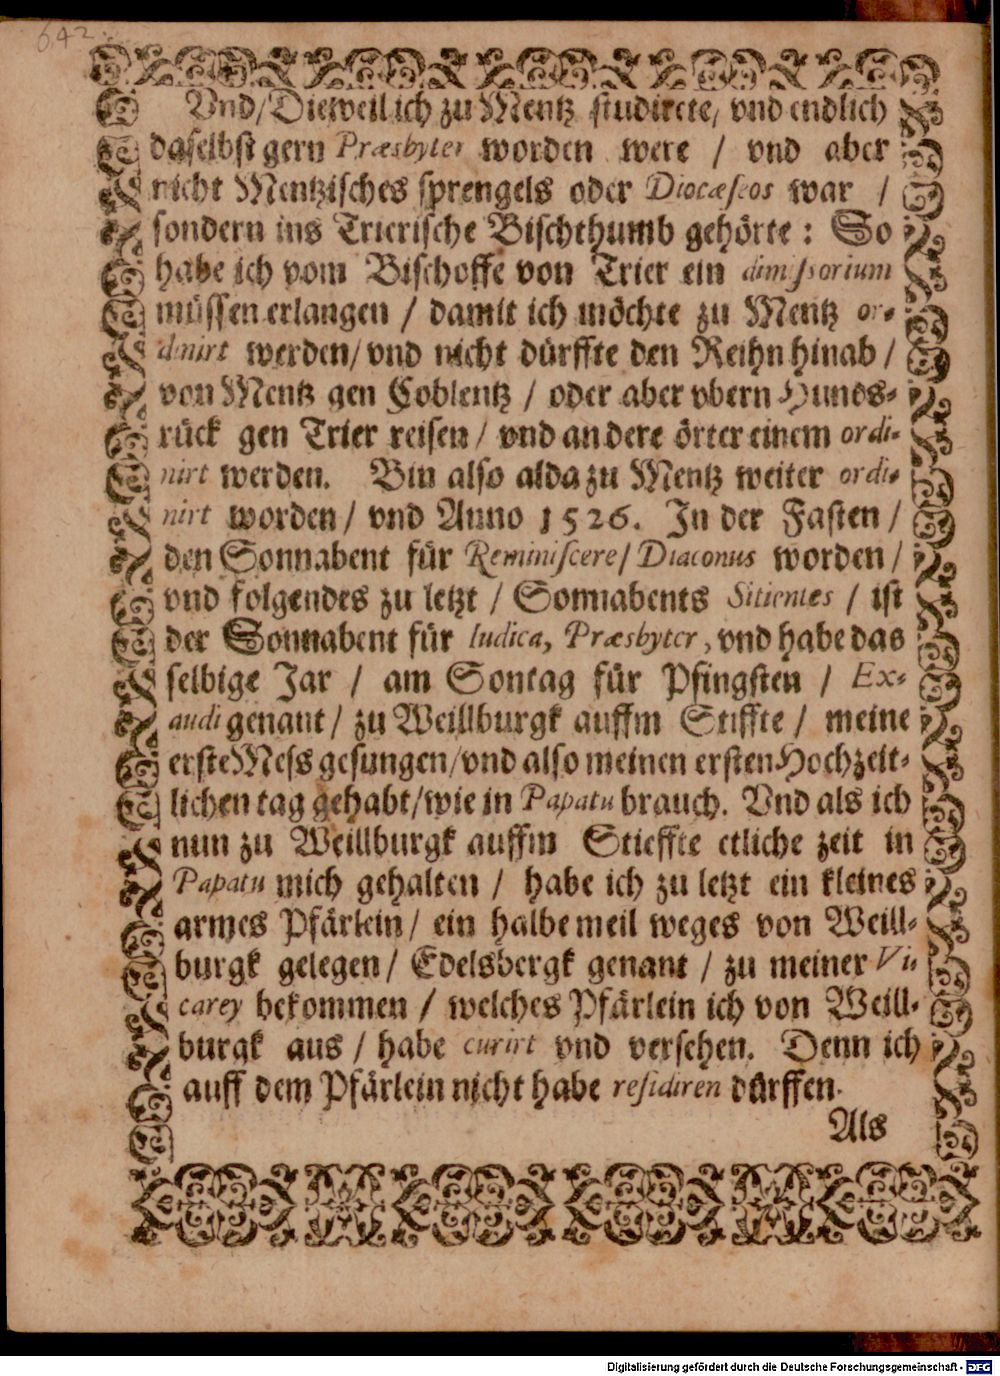 642
Vnd/ Dieweil ich zu Mentz studirete/ vnd endlich
daselbst gern Præsbyter worden were / vnd aber
nicht Mentzisches sprengels oder Diocæseos war /
sondern ins Trierische Bischthumb gehörte : So
habe ich vom Bischoffe von Trier ein dimissorium
müssen erlangen / damit ich möchte zu Mentz or-
dinirt werden/ vnd nicht dürffte den Reihn hinab /
von Mentz gen Coblentz / oder aber vbern Hunds-
rück gen Trier reisen / vnd an dere örter einem ordi-
nirt werden. Bin also alda zu Mentz weiter ordi-
nirt worden / vnd Anno 1526. In der Fasten /
den Sonnabent für Reminiscere/ Diaconus worden /
vnd folgendes zu letzt / Sonnabents Sitientes / ist
der Sonnabent für Iudica, Præsbyter, vnd habe das
selbige Jar / am Sontag für Pfingsten / Ex-
audi genant / zu Weillburgk auffm Stiffte / meine
erste Mess gesungen/ vnd also meinen ersten Hochzeit-
lichen tag gehabt/ wie in Papatu brauch. Vnd als ich
nun zu Weillburgk auffm Stieffte etliche zeit in
Papatu mich gehalten / habe ich zu letzt ein kleines
armes Pfärlein / ein halbe meil weges von Weill-
burgk gelegen / Edelsbergk genant / zu meiner Vi-
carey bekommen / welches Pfärlein ich von Weill-
burgk aus / habe curirt vnd versehen. Denn ich
auff dem Pfärlein nicht habe residiren dürffen.
Als
Digitalisierung gefördert durch die Deutsche Forschungsgemeinschaft - DFG